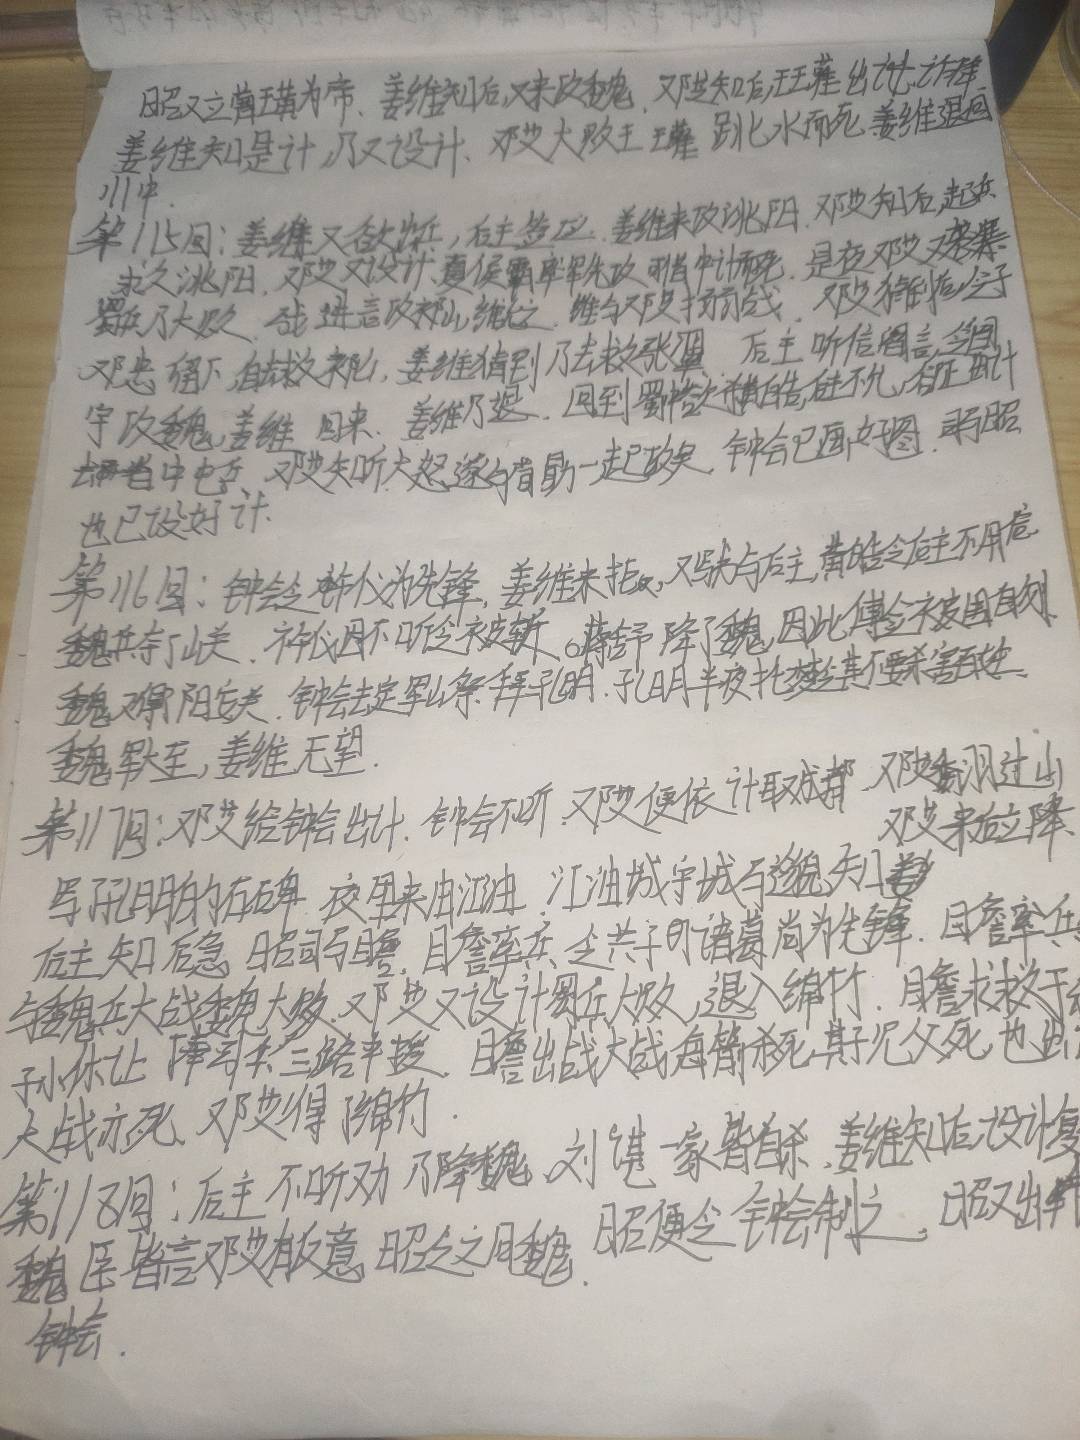 昭又立曹璜为帝、姜维知后,又来攻魏、邓艾知后,王瓘出计诈降
姜维知是计,乃又设计、邓艾大败王瓘跳水而死姜维退回
川中.
第115回:姜维又欲出兵,后主答应、姜维来攻洮阳、邓艾知后,起兵
求久洮阳、邓艾又设计、夏侯霸率军先攻 中计而死、是夜邓艾又袭寨
蜀兵乃大败、 进言攻祁山维 之、维与邓艾 战、邓艾猜到 公子
邓忠留下,自去救祁山,姜维猜到乃去救张翼、后主听信 言,令阎
宇攻魏,姜维回来、姜维乃退、回到蜀 欲 皓,后主不允, 正 计
沓中屯兵、邓艾知听大怒,遂与 一起 、钟会已画好图、司马昭
也已设好计.
第116回:钟会令许仪为先锋,姜维来拒 ,又 与后主,黄皓令后主不用信
魏兵夺了山关、许仪因不听令被斩。蒋舒降了魏,因此傅佥被围自刎、
魏又得阳安关、钟会去定军山祭拜孔明、孔明半夜托梦 不要杀害百姓、
魏军大至,姜维无望.
第117回:邓艾给钟会出计、钟会不听、邓艾便依计取成都、邓艾 翻过山
邓艾来后立降、
写了孔明的石碑、夜里来由江油、江油城守城 知
后主知后急、 诸葛瞻、瞻率兵、令其子 诸葛尚为先锋、瞻率兵
与魏兵大战魏大败、邓艾又设计蜀兵大败,退入绵竹、瞻求救于
孙休让 三路 援、瞻出战大战 箭 死,其子见父死,也出
大战亦死、邓艾得了绵竹.
第118回:后主不听劝乃降魏、刘谌一家皆自杀、姜维知后设计复
魏臣皆言邓艾有反意、昭令 魏、昭便令钟会制之、昭又出
钟会.